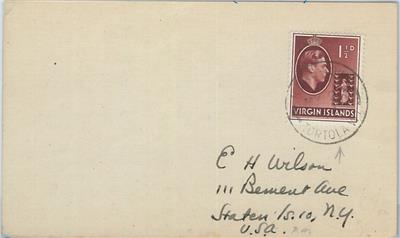 1½D
VIRGIN ISLANDS
TORTOLA
E H Wilson
111 Bement Ave
Staten Is. 10, N.Y.
U.S.A.